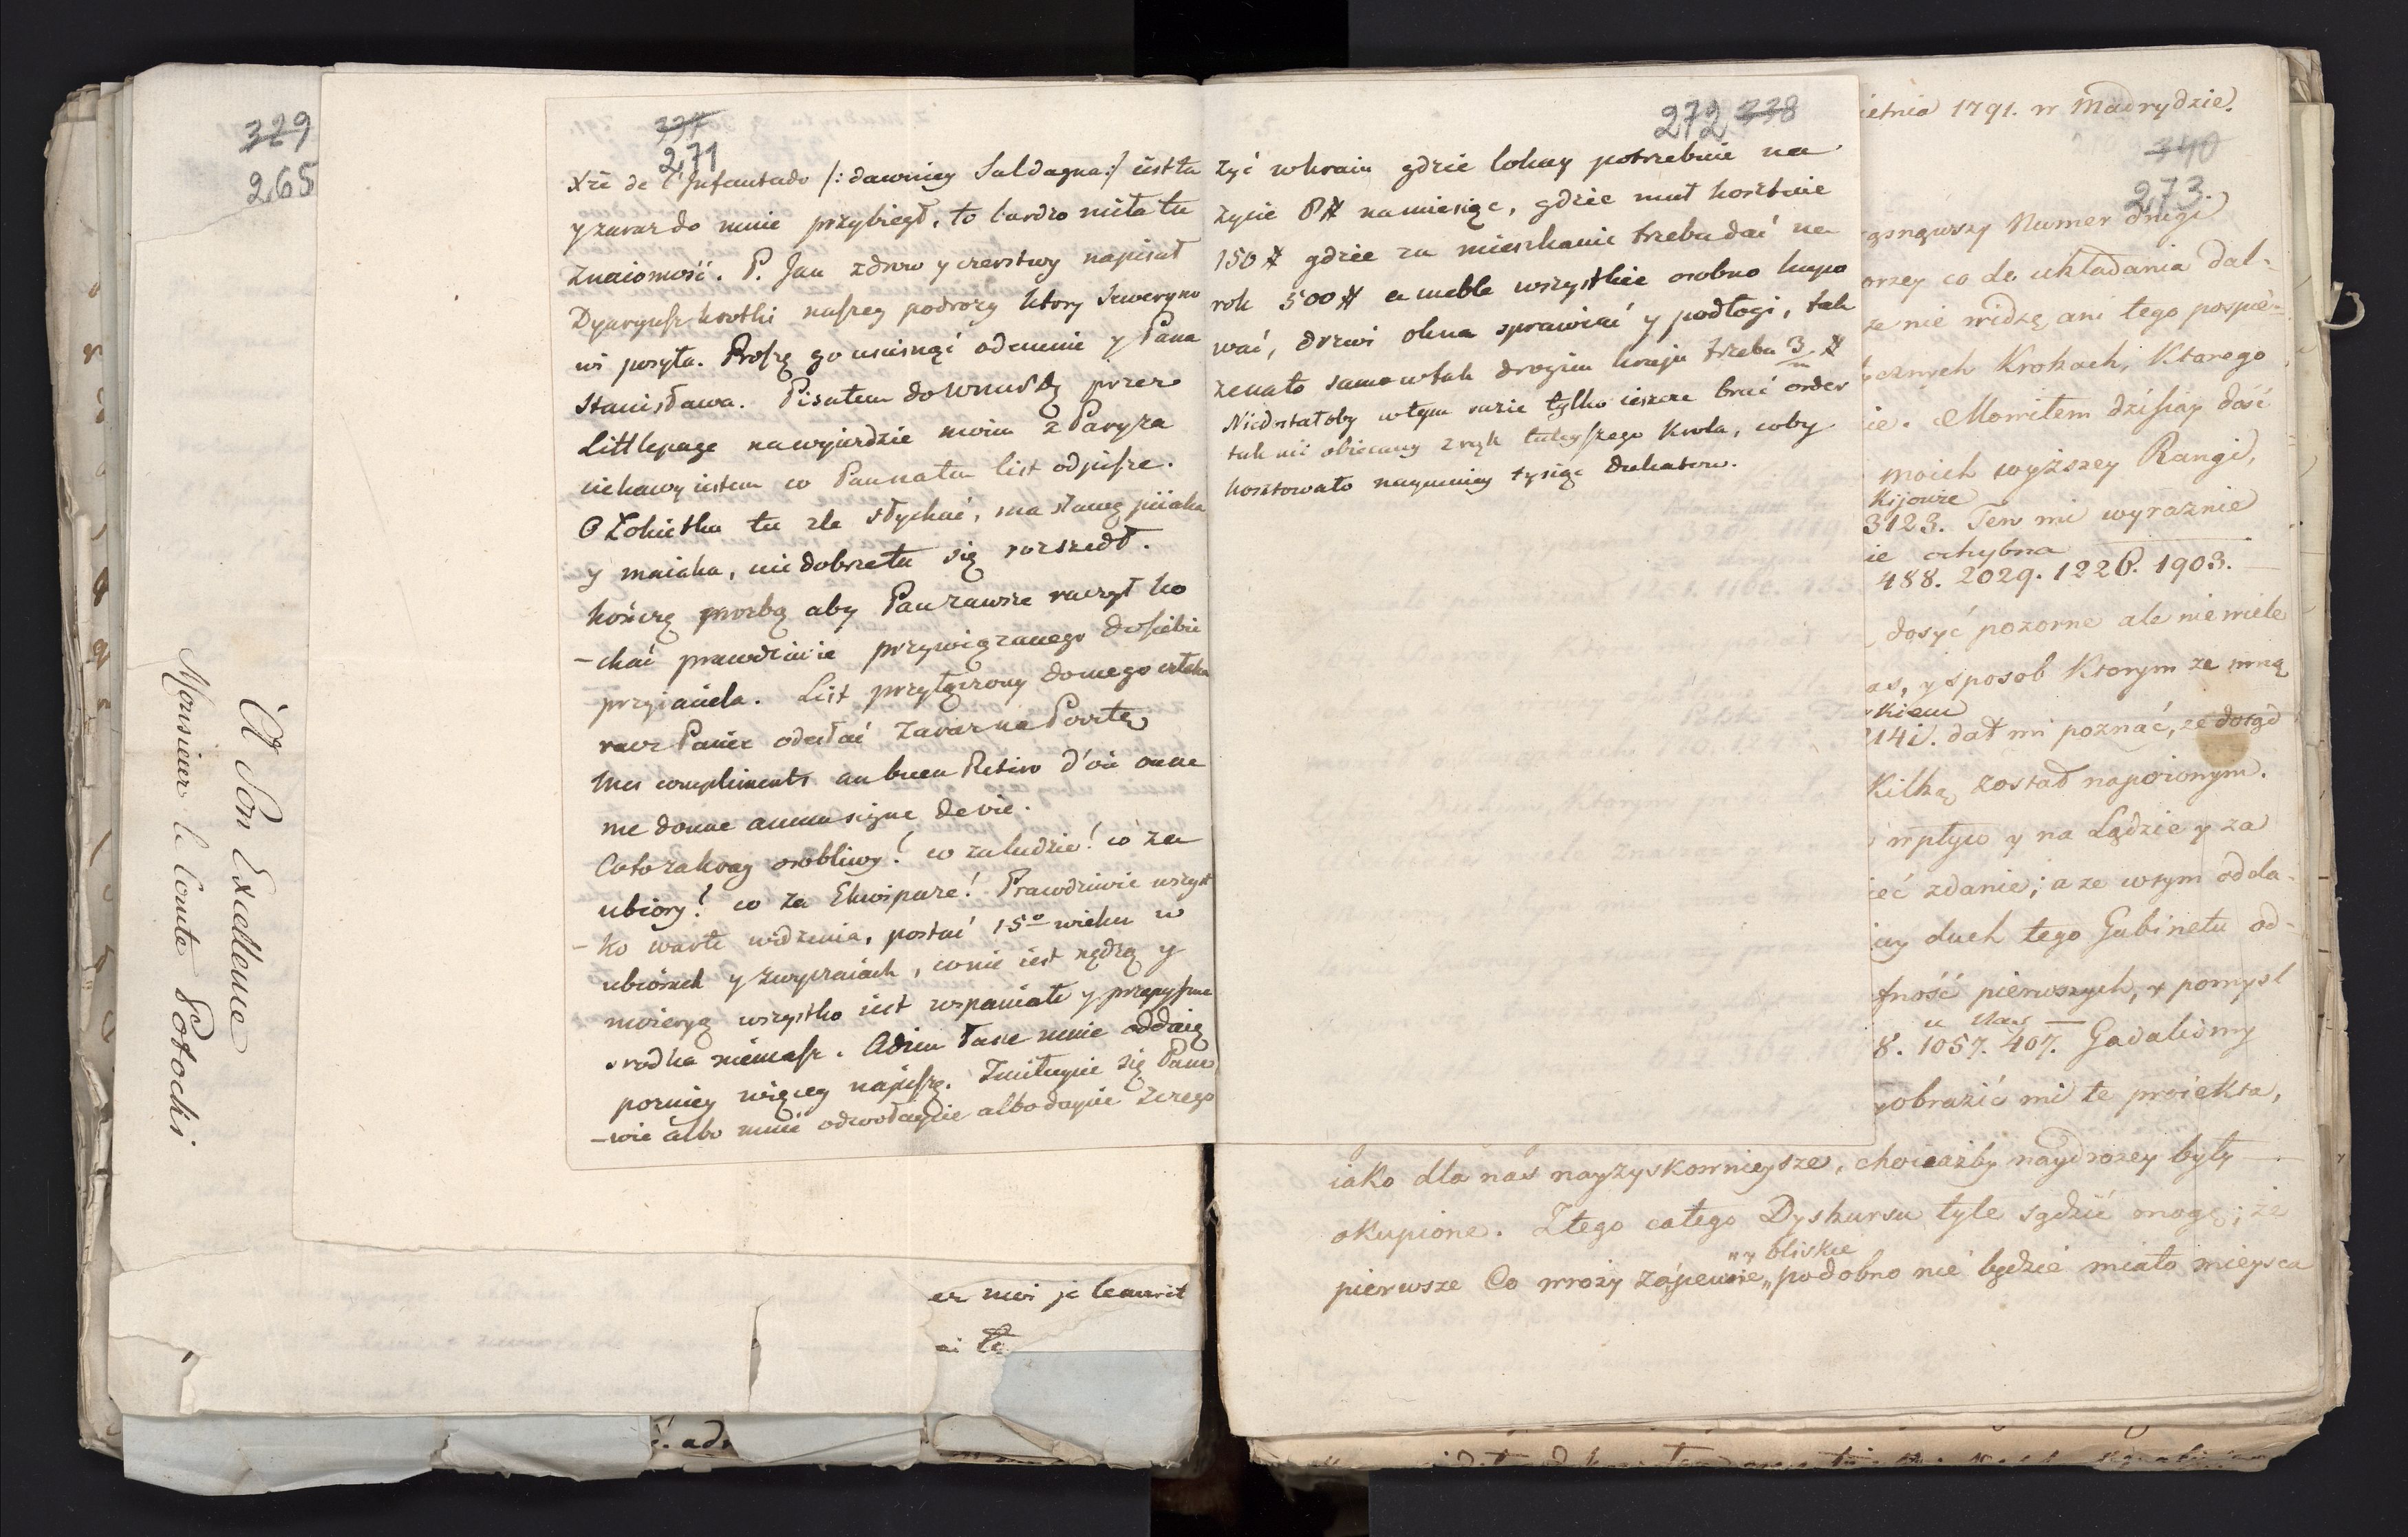 329
265
A Son Excellence
Monsieur le Comte Potocki
337
271
Xże de l'Infantado /: dawniey Saldagna:/ iest tu
y zaraz do mnie przybiegł, to bardzo miła tu
znaiomość. P. Jan zdrow y czerstwy napisał
Dyaryusz krotki naszey podroży ktory Seweryno
wi posyła. Proszę go uscisnąć odemnie y Pana
Stanisława. Pisałem do przez
Littlepage na wyjezdzie moim z Paryża
ciekawy iestem co Pan na ten list odpisze.
O Łokietku tu zle słychać, ma sławę piiaka
y , nie dobrze tu się rozszedł.
kończę prozbą aby Pan zawsze raczył ko
-chać prawdziwie przywiązanego do siebie
przyiaciela. List przyłączony do mego
racz Panie odesłać zaraz na Pocztę
Mes compliments au buen Retiro d'où on ne
me donne aucun signe de vie.
Co to za kray osobliwy! co za ludzie! co za
ubiory! co za Ekwipaze! Prawdziwie wszyst
-ko warte widzenia, postać 15º wieku w
ubiorach y zwyczaiach, co nie iest nędzą y
wszystko iest wspaniałe y przepyszne
srodka niemasz. Adieu Łasce mnie oddaię
pozniey więcey napiszę. Zmiłuycie się Pano
-wie albo mnie odwołaycie albo daycie z czego
272 338
żyć w kraiu gdzie lokay potrzebuie na
życie 8# na miesiąc, gdzie muł kosztuie
150 # gdzie za mieszkanie trzeba dać na
rok 500 # a meble wszystkie osobno kupo
wać, drzwi okna sprawiać y podłogi, tak
ze na to samo w tak drogim kraju trzeba 3 #
Niedostałoby w tym razie tylko ieszcze brać order
tak nie obiecany z rąk tuteyszego Krola, coby
kosztowało naymniey tysiąc dukatow.
ietnia 1791. w Madrydzie.
340
273.
Numer drugi
orzey co do układania dal-
ze nie widzę ani tego pospie-
cznych Krokach, Ktorego
ie. Mowiłem dzisiay dość
moich wyższey Rangi,
Kijowie
3123. Ten mi wyraznie
ie ochybna
488. 2029. 1226. 1903.
dosyć pozorne ale niewiele
as, y sposob Ktorym ze mną
skiem
2141. dał mi poznać, ze dotąd
Kilką został napoionym.
wpływ y na Lądzie y za
ieć zdanie; a ze w tym odda-
cy duch tego Gabinetu od-
fność pierwszych, y pomysl
u nas
8. 1057. 407. Gadalismy
yobrazić mi te proiekta,
iako dla nas nayzyskownieysze, chociażby naydrozey były
okupione. Z tego całego Dyskursu tyle sądzić mogę; że
ny bliskie
pierwsze Co wroży zapewnie „podobno nie będzie miało mieysca
er moi je